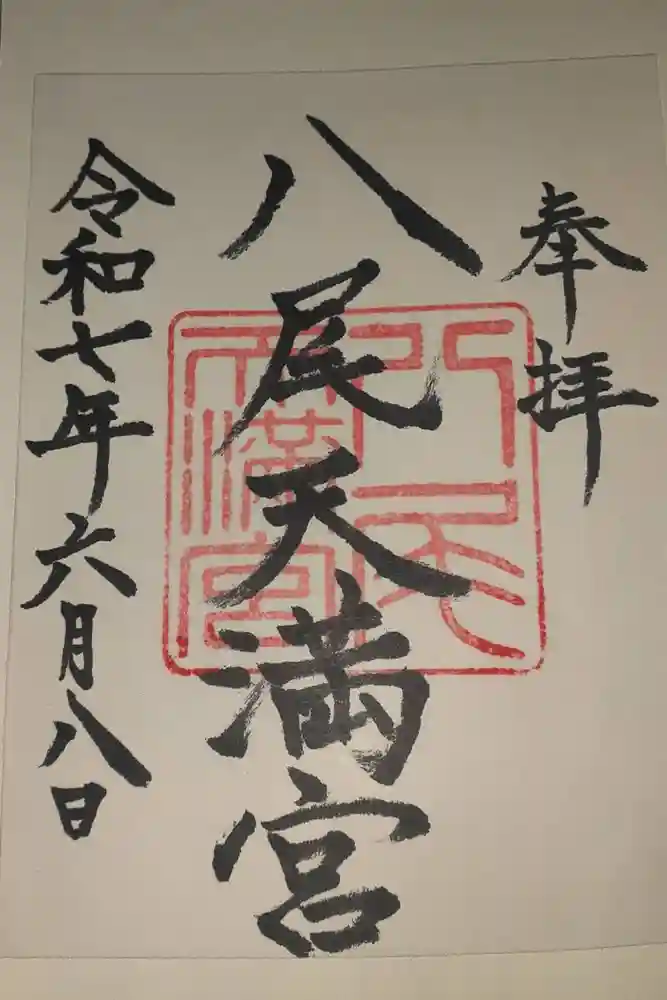 奉拝
八尾天満宮
八尾
天満宮
令和七年六月八日